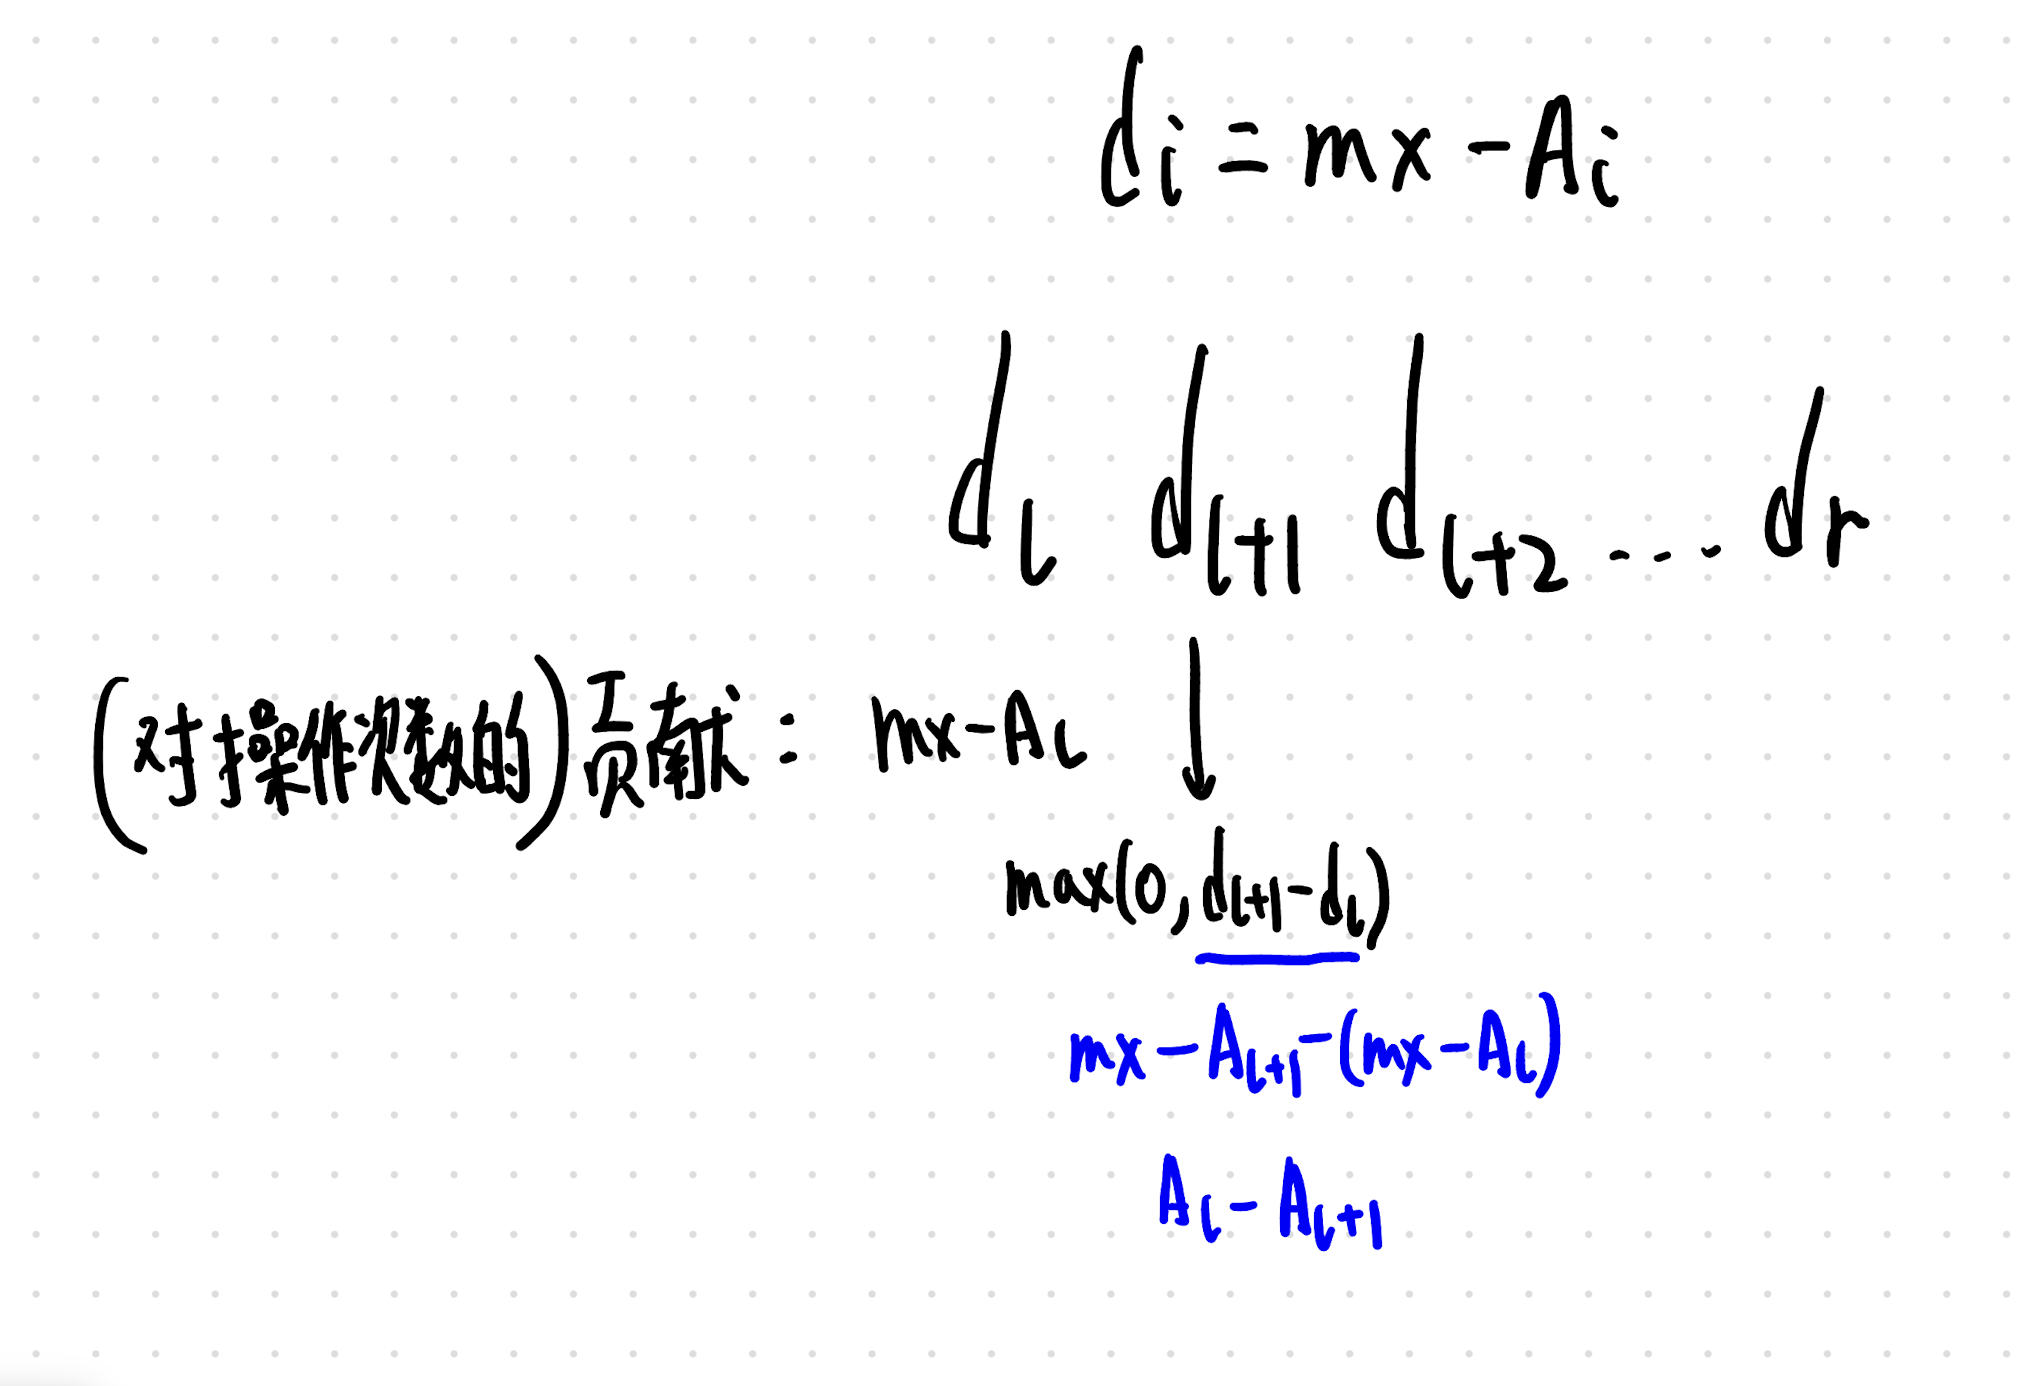 di = mx - Ai
dl dl+1 dl+2 ... dr
(对操作次数的)贡献: mx-Al ↓
max(0, dl+1-dl)
mx-Al+1-(mx-Al)
Al-Al+1